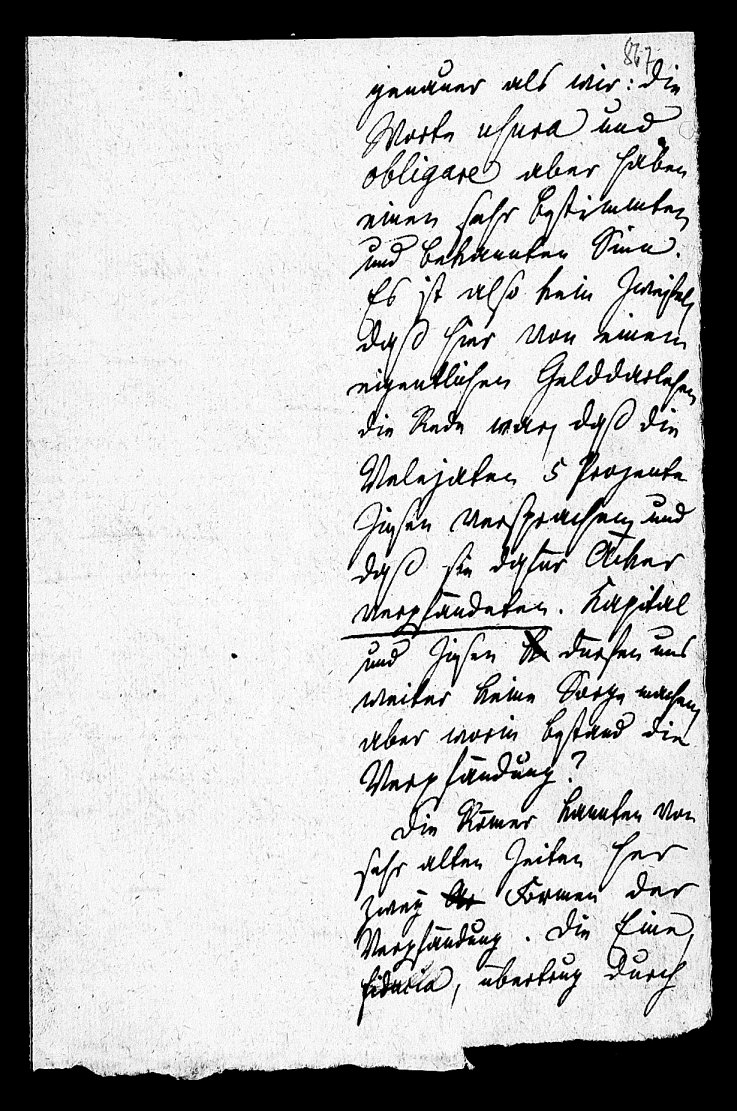 867
genauer als wir: die
Worte usura und
obligare aber haben
einen sehr bestimmten
und bekannten Sinn.
Es ist also kein Zweifel,
daß hier von einem
eigentlichen Gelddarlehen
die Rede war, daß die
Velejaten 5 Prozente
Zinsen versprachen, und
daß sie dafür Äcker
verpfändeten. Kapital
und Zinsen dürfen uns
weiter keine Sorge machen,
aber worin bestand die
Verpfändung?
Die Römer kannten von
sehr alten Zeiten her
zwey Formen der
Verpfändung. Die Eine,
fiducia, übertrug durch